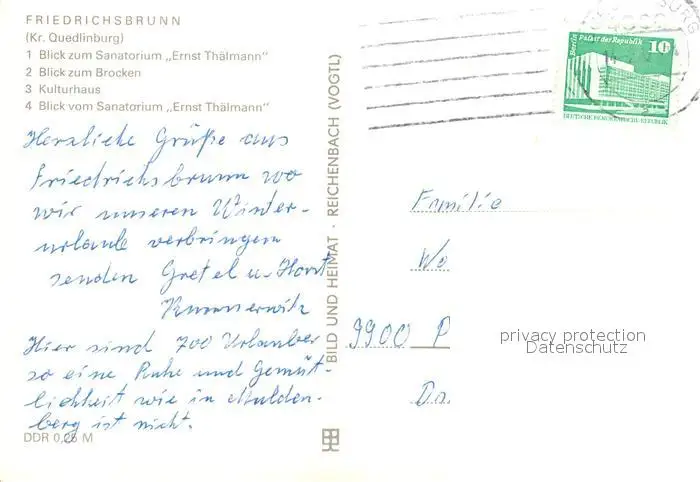 FRIEDRICHSBRUNN
(Kr. Quedlinburg)
1 Blick zum Sanatorium „Ernst Thälmann"
2 Blick zum Brocken
3 Kulturhaus
4 Blick vom Sanatorium „Ernst Thälmann"
Herzliche Grüße aus
Friedrichsbrunn wo
wir unseren Winter-
urlaub verbringen
senden Gretel u. Horst
Hier sind 700 Urlauber
so eine Ruhe und Gemüt-
lichkeit wie in Mulden-
berg ist nicht.
DDR 0,25 M
BILD UND HEIMAT · REICHENBACH (VOGTL)
Berlin Palast der Republik
10
DEUTSCHE DEMOKRATISCHE REPUBLIK
Familie
We
9900 P
privacy protection
Datenschutz